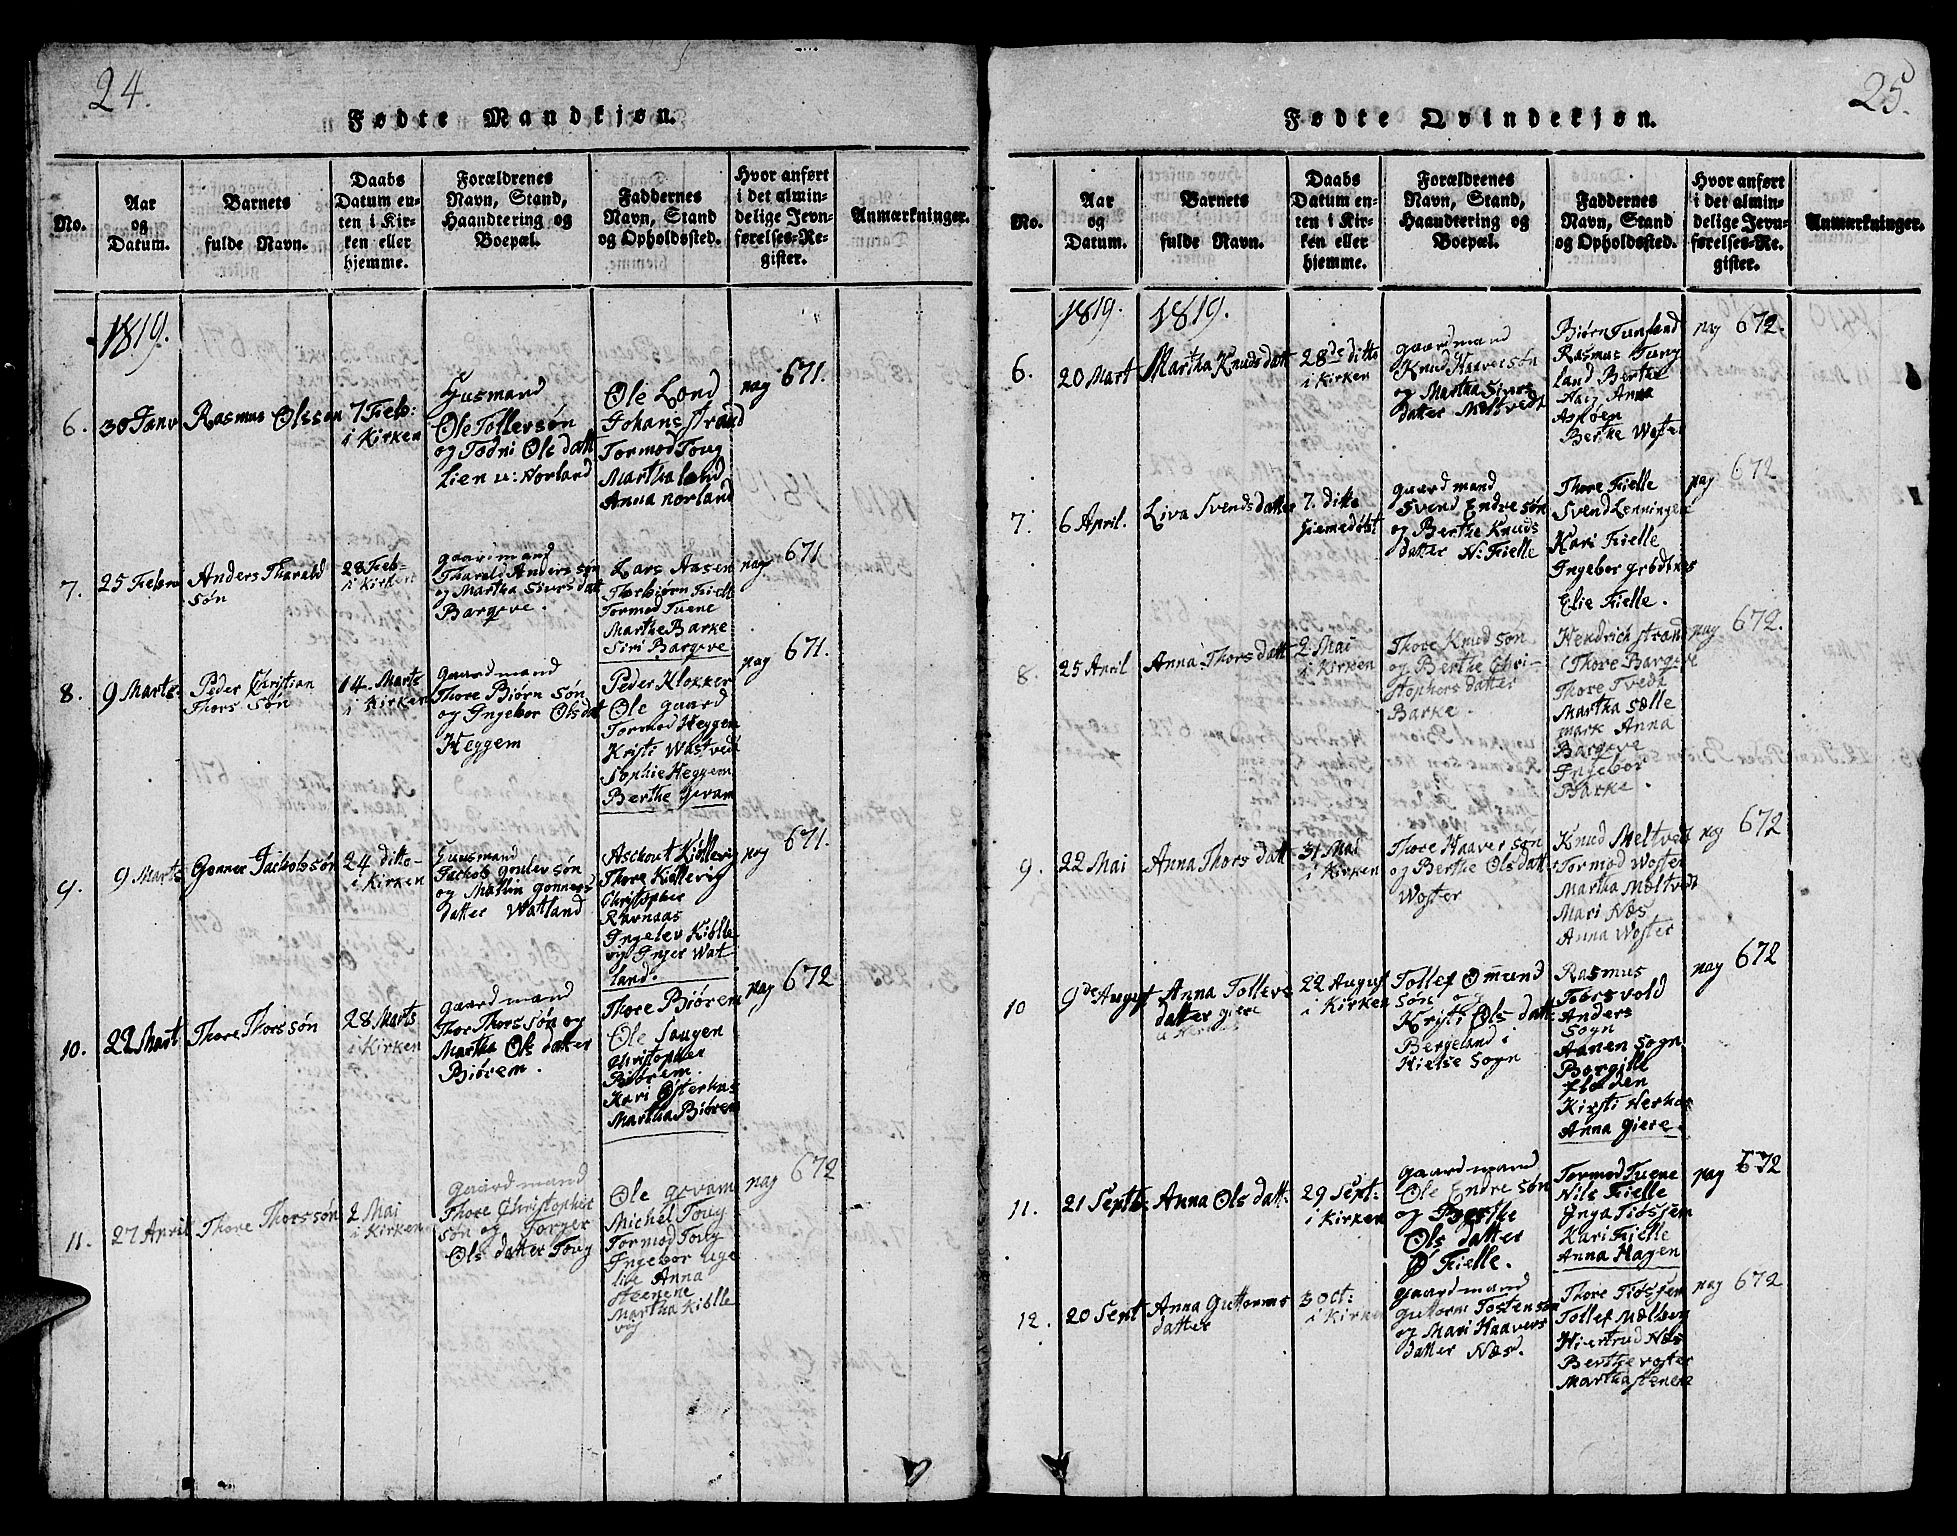 24.
Fødte Mandkjøn.
No.
Aar
og
Datum.
Barnets
fulde Navn.
Daabs
Datum en-
ten i Kir-
ken eller
hjemme.
Forældrenes
Navn, Stand,
Haandtering og
Boepæl.
Faddernes
Navn, Stand
og Opholdssted.
Hvor anført
i det almin-
delige Jevn-
førelses-Re-
gister.
Anmærkninger.
1819.
6.
30 Janv
Rasmus Olssøn
7 Feb:
i Kirken
Huusmand
Ole Tollevsøn
og Todni Ols datt
Lien u: Norland
Ole Lond
Johans strand
Tormod Toug
Martha lond
Anna norland
pag 671.
7.
25 Febru
Anders Tharald
søn
28 Feb-
i Kirken
gaardmand
Tharald Anders søn
og Martha Sivrs datt
Bargeve.
Lars Aasen
Thorbiørn Fielle
Tormod Tuene
Marthe Barke
Siri Bargeve
pag 671
8.
9 Marts
Peder Christian
Thors søn
14. Marts
i Kirken
gaardmand
Thore Biørn søn
og Ingebor Ols dat
Heggem
Peder Klokker
Ole gaard
Tormod Heggem
Kristi Wastvedt
Sophie Heggem
Berthe gevam
pag 671.
9.
9 Marts
Gonner Jackobsøn
24 ditto
i Kirken
Huusmand
Jackob gonlev søn
og Mallin gonners
datter Watland
Asckout Kiøllevig
Thore Kiøllevig
Christopher
Ravnaas
Ingelev Kiølle
vig Inger Wat
land.
pag 671.
10.
22 Mart
Thore Thorssøn
28 Marts
i Kirken
gaardmand
Thor Thors søn og
Martha Ols datter
Biørem.
Thore Biørem
Ole Saugen
Christopher
Biørem.
Kari Østerhus
Martha Biørem
pag 672
11.
27 April
Thore Thorssøn
2 Mai
i Kirken
gaardmand
Thore Christopher
søn og Torger
Ols datter Toug
Ole gevam
Michel Toug
Tormod Toug
Ingebor uge
lie Anna
steenene
Martha Kiølle
vig
pag 672
25.
Fødte Qvindekjøn.
No.
Aar
og
Datum.
Barnets
fulde Navn.
Daabs
Datum en-
ten i Kir-
ken eller
hjemme.
Forældrenes
Navn, Stand,
Haandtering og
Boepæl.
Faddernes
Navn, Stand
og Opholdssted.
Hvor anført
i det almin-
delige Jevn-
førelses-Re-
gister.
Anmærkninger.
1819. 1819.
6.
20 Mart
Martha Knuds datt
28de ditto
i Kirken
gaardmand
Knud Haaversøn
og Martha Sivrs
datter Meltvedt
Biørn Tungland
Rasmus Tung
land Berthe
Aag Anna
Asbøen
Berthe Woster
pag 672.
7.
6 April.
Liva Svendsdatter
7. ditto
hiemedøbt
gaardmand
Svend Endre søn
og Berthe Knuds
datter N: Fielle
Thore Fielle
Svend Lenningen
Kari Fielle
Ingebor
Elie Fielle.
pag 672
8.
25 April
Anna Thors datt
2 Mai
i Kirken
Thore Knud søn
og Berthe Chri-
stophors datter
Barke.
Hendrich strand
Thore Bargeve
Thore Tveda
Martha Sælle
mark Anna
Bargeve
Ingebor
Barke.
pag 672.
9.
22 Mai
Anna Thors datt
31 Mai
i Kirken
Thore Haaver søn
og Berthe Ols datt
Woster
Knud Meltvedt
Tormod Woster
Martha Mæltvedt
Mari Næs
Anna Woster
pag 672
10
9de August
Anna Tollevs
datter giere
22 August
i Kirken
Tollef Omund
søn og
Kristi Ols datt
Bergeland i
Hielse Sogn
Rasmus
Forsvold
Anders
Sogn
Aanen Sogn
Borgille
floden
Kirsti Herhus
Anna giere
pag 672
11.
21 Septb
Anna Ols datt:
29 Sept:
i Kirken
gaardmand
Ole Endre søn
og Berthe
Ols datter
Ø Fielle.
Tormod Tuene
Nils Fielle
Inga Tiøssem
Kari Fielle
Anna Hagen
pag 672
12.
20 Sept
Anna Guttorms
datter
3 Oct:
i Kirken
gaardmand
Guttorm Tosten søn
og Mari Haavers
datter Næs.
Thore Tiøssem
Tollef Mælberg
Hiertrud Næs
Berthe voster
Martha stenene
pag 672